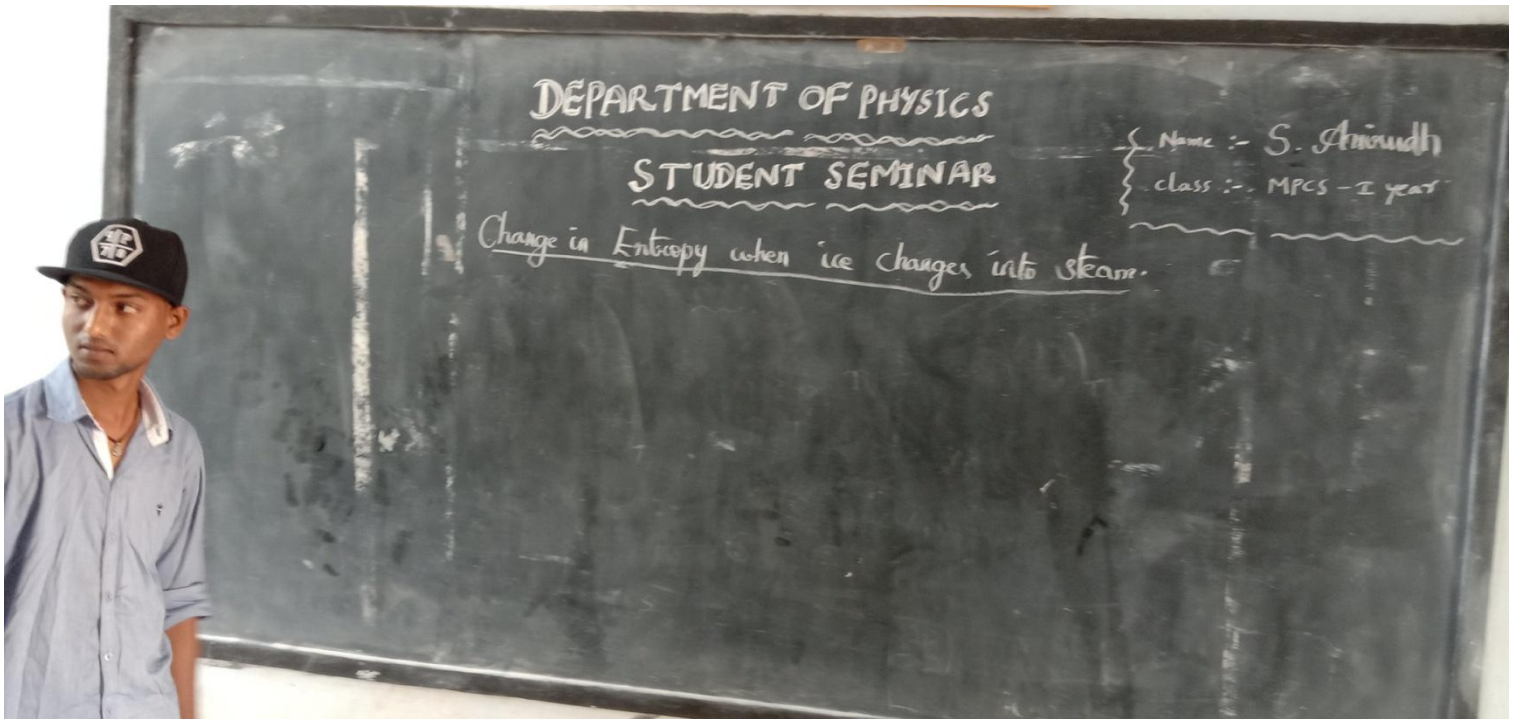 DEPARTMENT OF PHYSICS
STUDENT SEMINAR
Name :- S. Anirudh
class :- MPCS - I year
Change in Entropy when ice changes into steam.